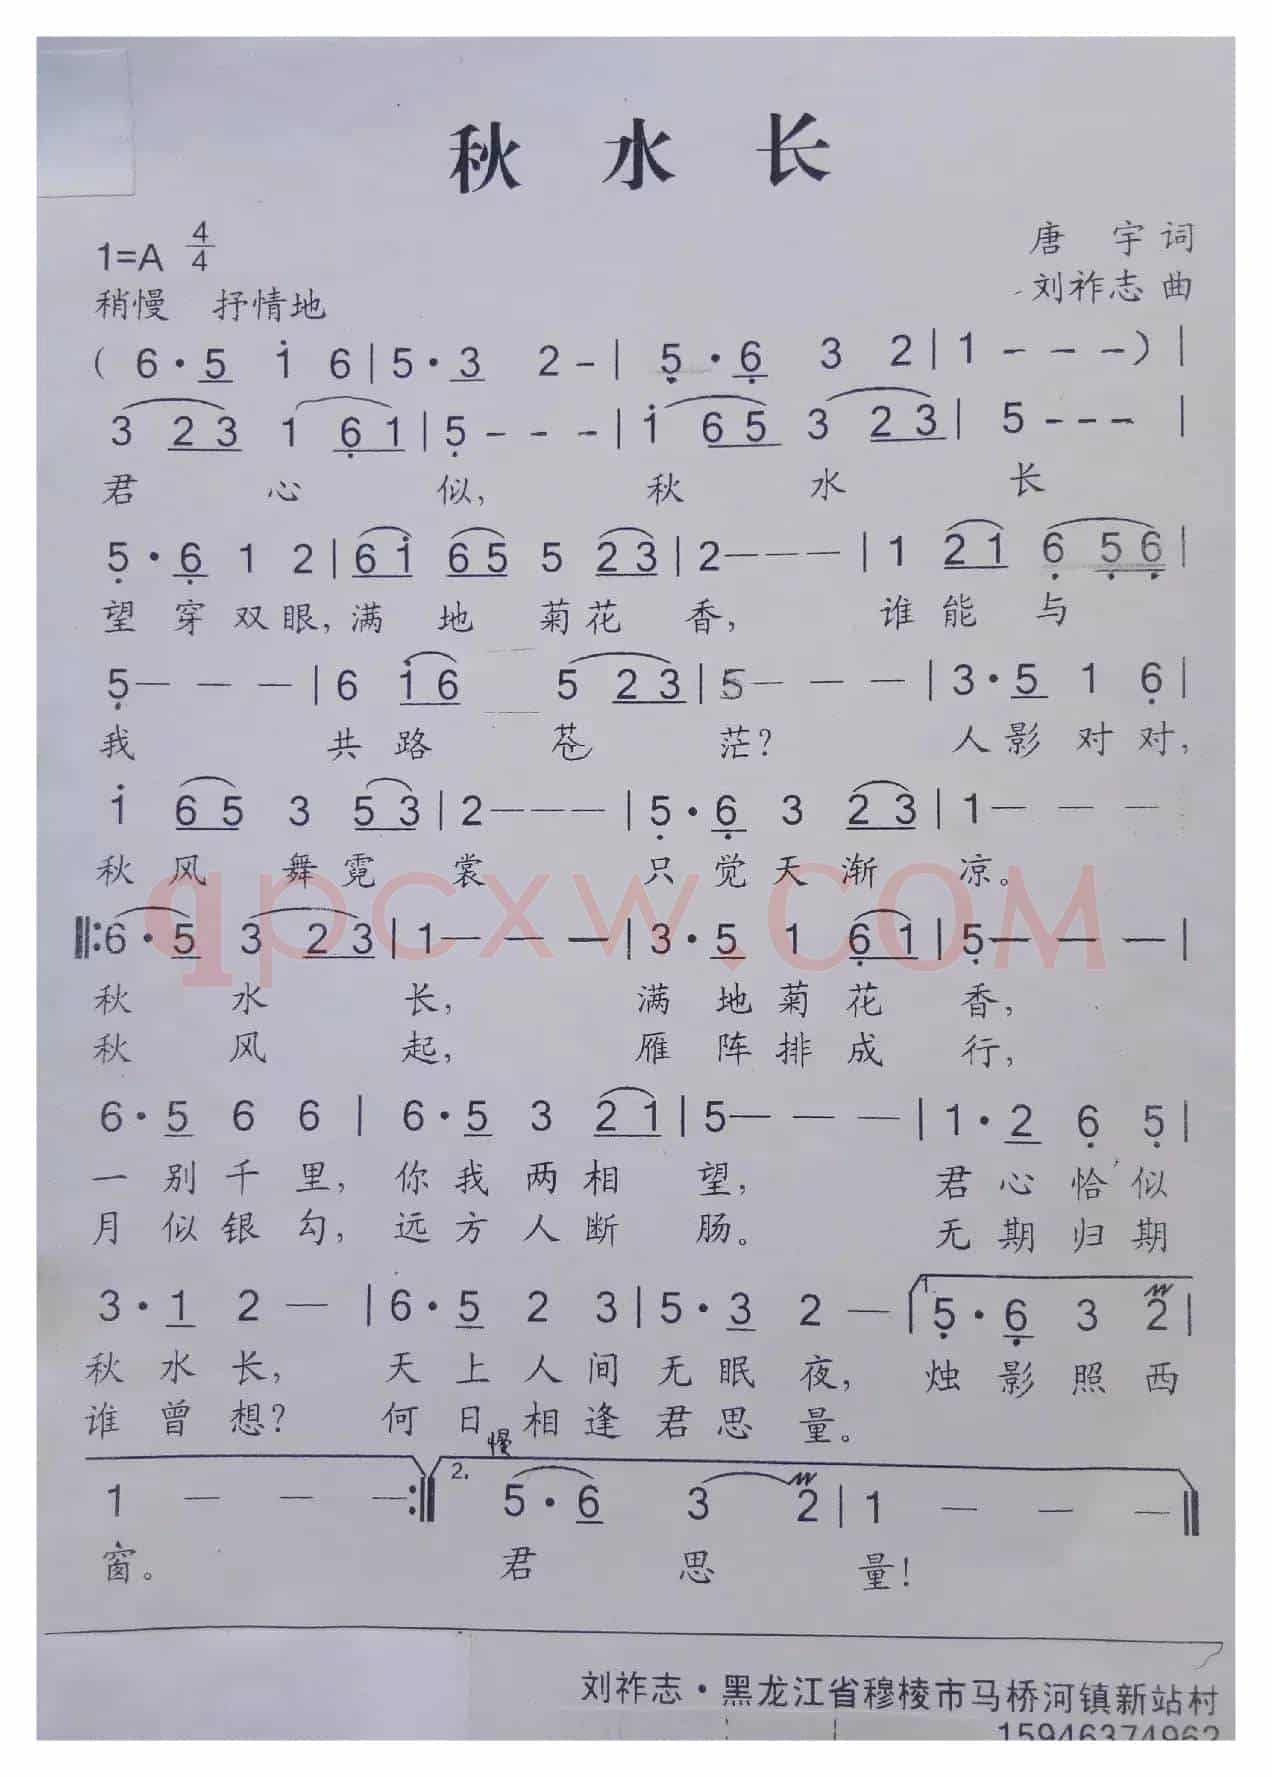 秋水长
1=A 4/4
唐 宇 词
稍慢 抒情地
刘祚志 曲
( 6 · 5 i 6 | 5 · 3 2 - | 5 · 6 3 2 | 1 - - - ) |
3 2 3 1 6 1 | 5 - - - | i 6 5 3 2 3 | 5 - - - |
君 心 似, 秋 水 长
5 · 6 1 2 | 6 i 6 5 5 2 3 | 2 - - - | 1 2 1 6 5 6 |
望 穿 双 眼, 满 地 菊 花 香, 谁 能 与
5 - - - | 6 i 6 5 2 3 | 5 - - - | 3 · 5 1 6 |
我 共 路 苍 茫? 人 影 对 对,
i 6 5 3 5 3 | 2 - - - | 5 · 6 3 2 3 | 1 - - -
秋 风 舞 霓 裳 只 觉 天 渐 凉。
qpcxw.com
‖: 6 · 5 3 2 3 | 1 - - - | 3 · 5 1 6 1 | 5 - - - |
秋 水 长, 满 地 菊 花 香,
秋 风 起, 雁 阵 排 成 行,
6 · 5 6 6 | 6 · 5 3 2 1 | 5 - - - | 1 · 2 6 5 |
一 别 千 里, 你 我 两 相 望, 君 心 恰 似
月 似 银 勾, 远 方 人 断 肠。 无 期 归 期
3 · 1 2 - | 6 · 5 2 3 | 5 · 3 2 - | 1. 5 · 6 3 2 |
秋 水 长, 天 上 人 间 无 眠 夜, 烛 影 照 西
谁 曾 想? 何 日 相 逢 君 思 量。
慢
1 - - - :‖ 2. 5 · 6 3 2 | 1 - - - ‖
窗。 君 思 量!
刘祚志·黑龙江省穆棱市马桥河镇新站村
15946374962